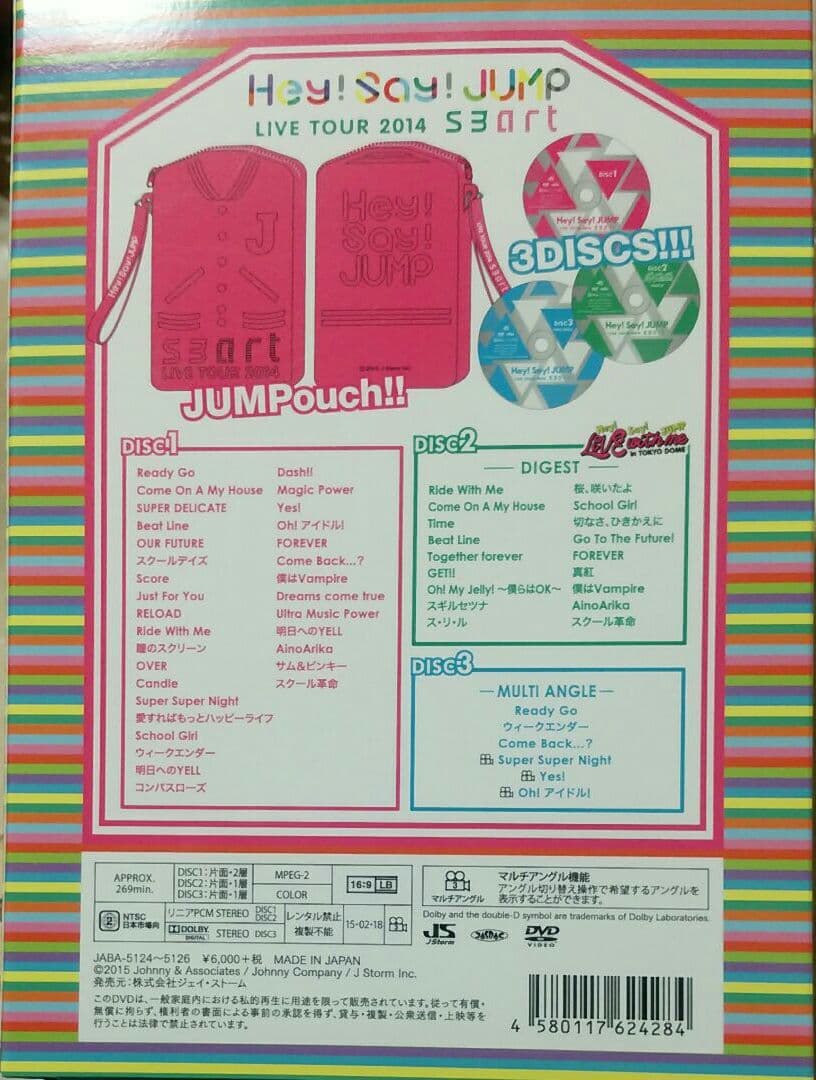 Hey! Say! JUMP
LIVE TOUR 2014 S3art
J
S3art
LIVE TOUR 2014
Hey! Say! JUMP
Hey!
Say!
JUMP
JUMPouch!!
DISC1
Hey! Say! JUMP
3DISCS!!!
DISC2
Hey! Say! JUMP
DISC3
Hey! Say! JUMP
DISC1
Ready Go
Come On A My House
SUPER DELICATE
Beat Line
OUR FUTURE
スクールデイズ
Score
Just For You
RELOAD
Ride With Me
瞳のスクリーン
OVER
Candle
Super Super Night
愛すればもっとハッピーライフ
School Girl
ウィークエンダー
明日へのYELL
コンパスローズ
Dash!!
Magic Power
Yes!
Oh! アイドル!
FOREVER
Come Back...?
僕はVampire
Dreams come true
Ultra Music Power
明日へのYELL
AinoArika
サム&ピンキー
スクール革命
DISC2
Hey! Say! JUMP
LIVE with me
in TOKYO DOME
DIGEST
Ride With Me
Come On A My House
Time
Beat Line
Together forever
GET!!
Oh! My Jelly! ～僕らはOK～
スギルセツナ
ス・リ・ル
桜、咲いたよ
School Girl
切なさ、ひきかえに
Go To The Future!
FOREVER
真紅
僕はVampire
AinoArika
スクール革命
DISC3
MULTI ANGLE
Ready Go
ウィークエンダー
Come Back...?
Super Super Night
Yes!
Oh! アイドル!
APPROX.
269min.
DISC1:片面・2層
DISC2:片面・1層
DISC3:片面・1層
MPEG-2
COLOR
16:9 LB
2 NTSC
日本市場向
リニアPCM STEREO DISC1 DISC2
DOLBY DIGITAL STEREO DISC3
レンタル禁止
複製不能
15-02-18
3
マルチアングル
マルチアングル機能
アングル切り替え操作で希望するアングルを
表示することができます。
Dolby and the double-D symbol are trademarks of Dolby Laboratories.
JS
J Storm
JASRAC
DVD
VIDEO
JABA-5124～5126 ¥6,000+税 MADE IN JAPAN
©2015 Johnny & Associates / Johnny Company / J Storm Inc.
発売元:株式会社ジェイ・ストーム
このDVDは、一般家庭内における私的再生に用途を限って販売されています。従って有償・
無償に拘らず、権利者の書面による事前の承認を得ず、貸与・複製・公衆送信・上映等を
行うことは法律で禁止されています。
4 580117 624284